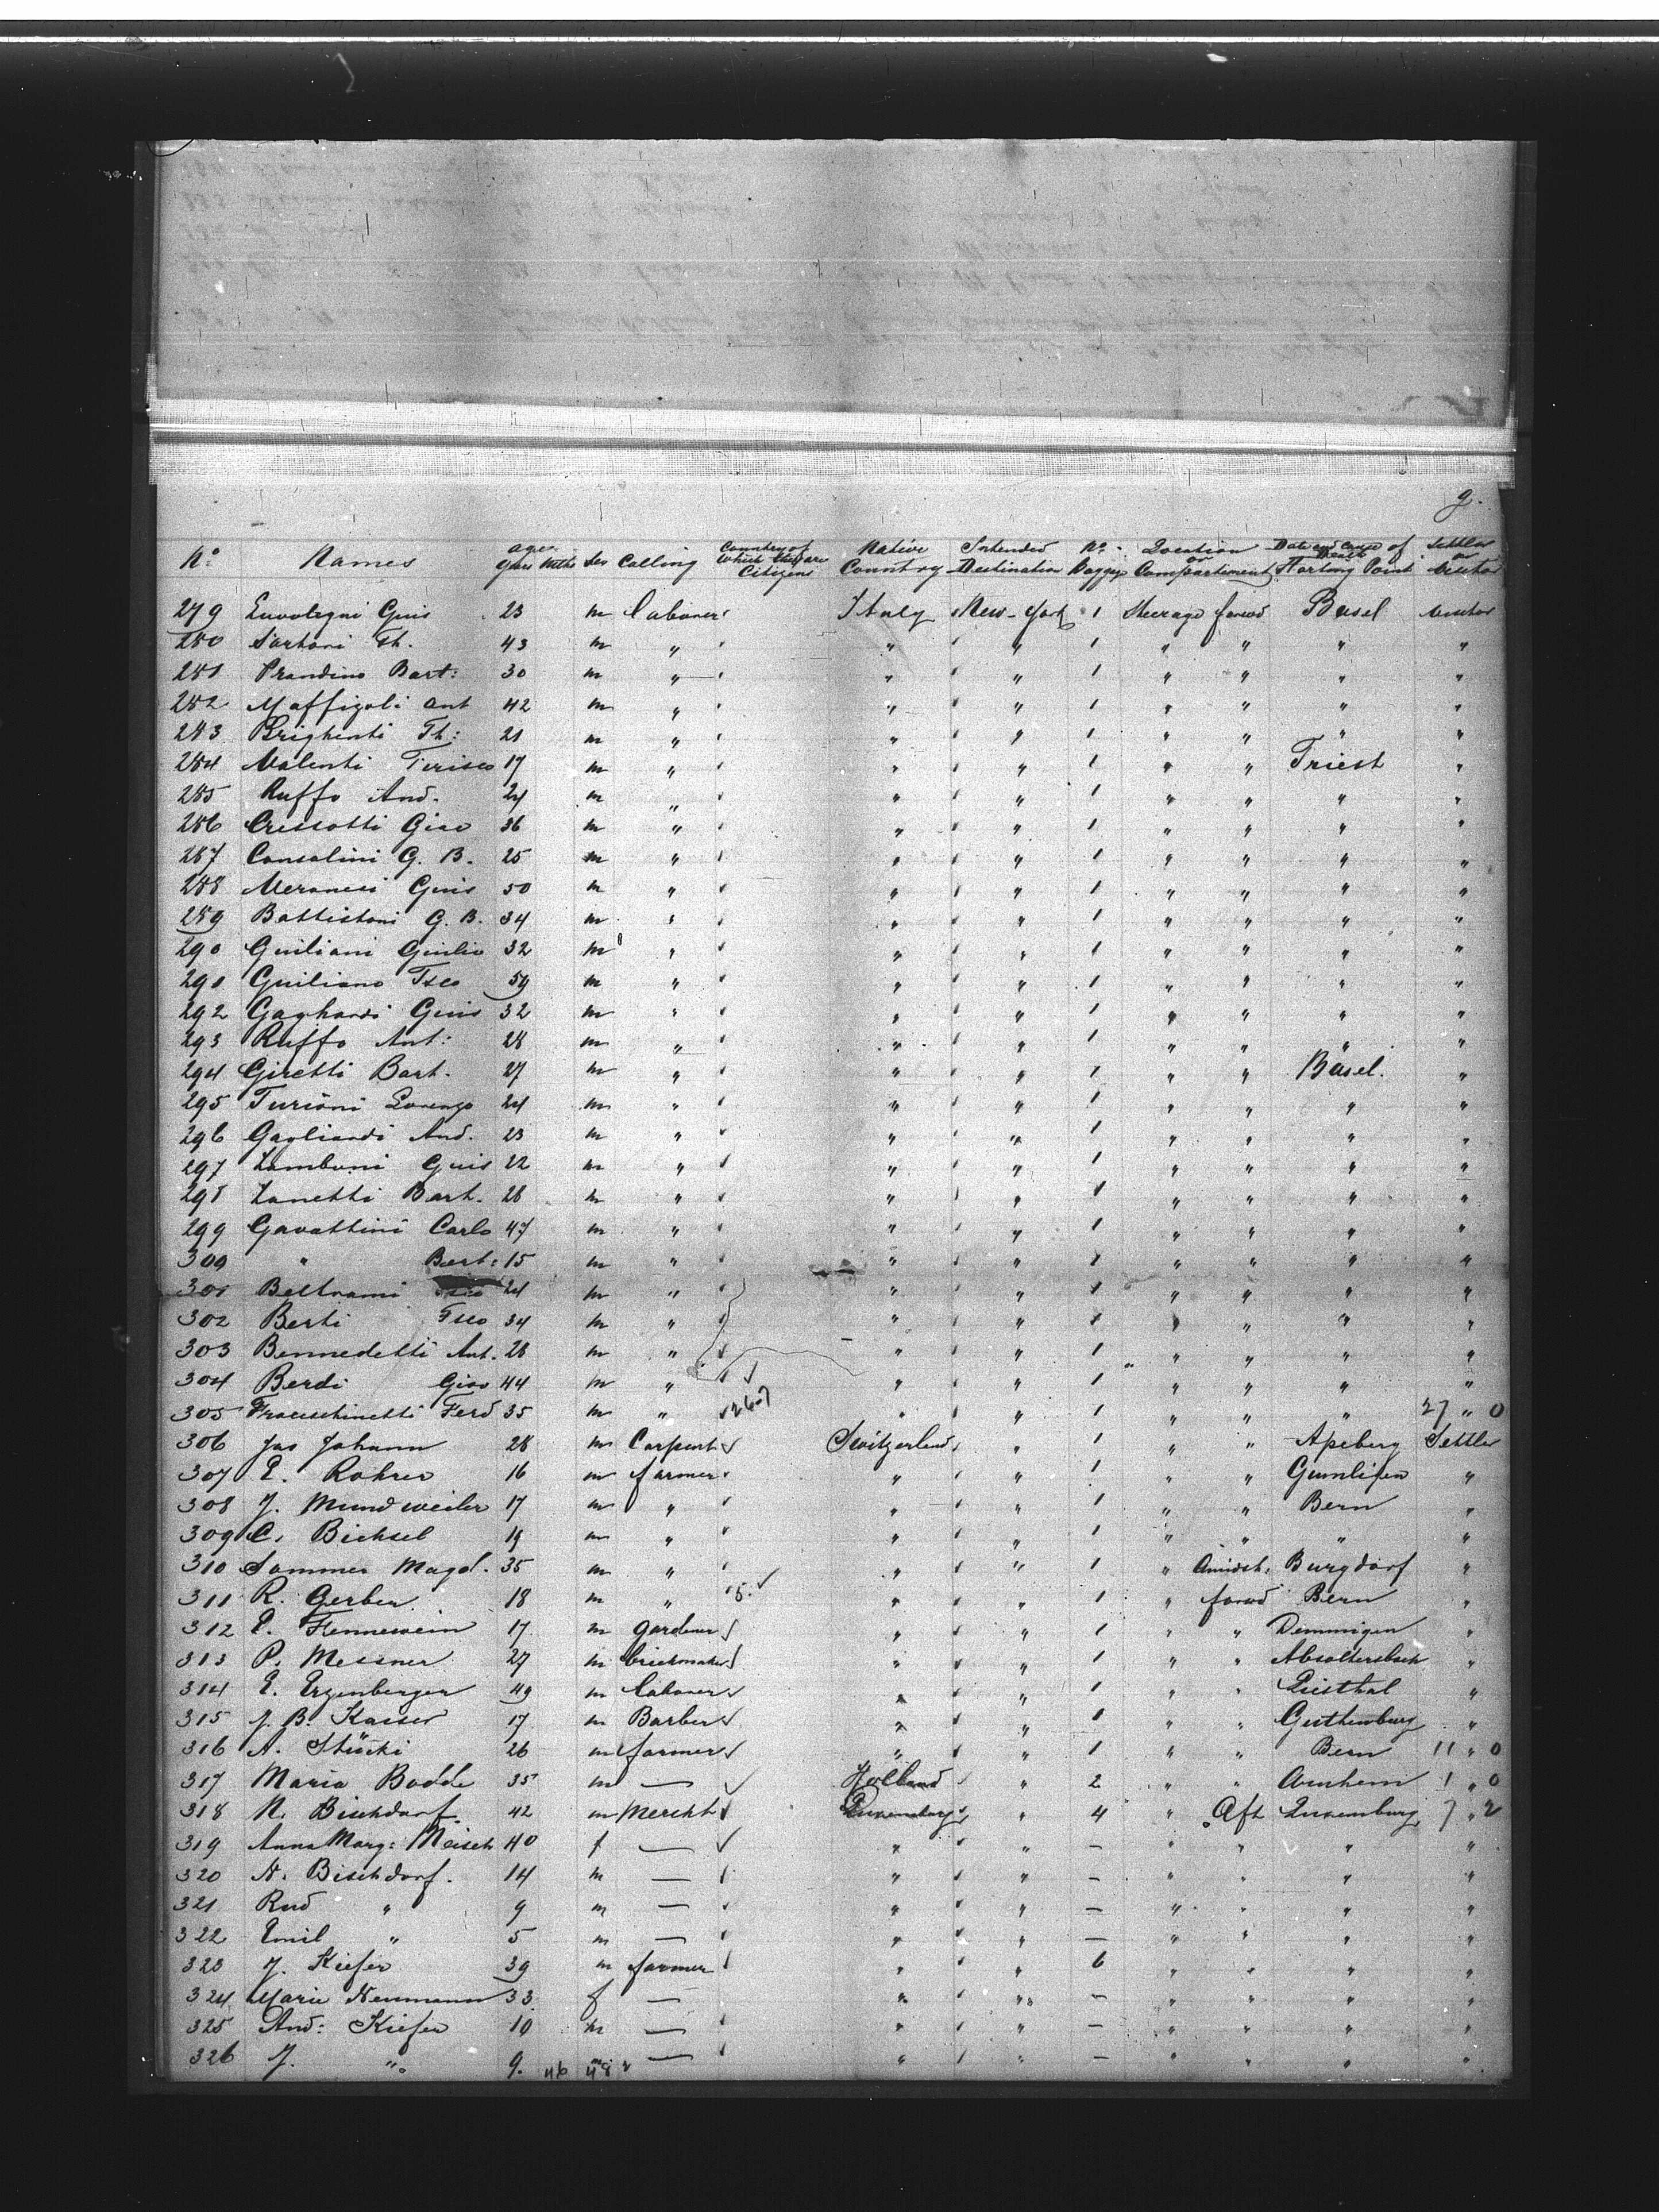 9.
No. Names ages Years Mths Sex Calling Country of Which they are Citizens Native Country Intended Destination No. Baggage Location or Compartiment Date and Cause of Death Starting Point Settler or Visitor
279 Guis 23 m Laborer Italy New-York 1 Steerage forwd Basel
280 Sartori Th. 43 m " " " 1 " " " "
281 Prandino Bart: 30 m " " " 1 " " " "
282 Maffizoli Ant 42 m " " " 1 " " " "
283 Brighenti Th: 21 m " " " 1 " " " "
284 Valenti 17 m " " " 1 " " Triest "
285 Ruffo And. 24 m " " " 1 " " " "
286 Cressotti Giac 36 m " " " 1 " " " "
287 Consolini G. B. 25 m " " " 1 " " " "
288 Guis 50 m " " " 1 " " " "
289 Battistoni G. B. 34 m " " " 1 " " " "
290 Guiliani Giulio 32 m " " " 1 " " " "
291 Guiliano Fsco 59 m " " " 1 " " " "
292 Gaghardi Guis 32 m " " " 1 " " " "
293 Ruffo Ant: 28 m " " " 1 " " " "
294 Giretti Bart. 27 m " " " 1 " " Basel. "
295 Turioni Lorenzo 24 m " " " 1 " " " "
296 Gagliardi And. 23 m " " " 1 " " " "
297 Zamboni Guis 22 m " " " 1 " " " "
298 Zanetti Bart. 28 m " " " 1 " " " "
299 Gavattini Carlo 47 m " " " 1 " " " "
300 " Bart: 15 m " " " 1 " " " "
301 Beltrami 24 m " " " 1 " " " "
302 Berti Fsco 34 m " " " 1 " " " "
303 Bennedetti Ant. 28 m " " " 1 " " " "
304 Berdi Giac 44 m " " " 1 " " " "
305 Franceschinetti Ferd 35 m " 26-7 " " 1 " " " 27 " 0
306 Jas Johann 28 m Carpent Switzerland " 1 " " Apeberg Settler
307 E. Rohrer 16 m farmer " " 1 " " Gumlifen "
308 J. Mundweiler 17 m " " " 1 " " Bern "
309 C. Bichsel 19 m " " " 1 " " " "
310 Sommer Magd. 35 m " " " 1 " Amidsh. Burgdorf "
311 R. Gerber 18 m " 5. " " 1 " forwd Bern "
312 E. Hennewein 17 m gardener " " 1 " " Demmigen "
313 P. Messner 27 m brickmaker " " 1 " " "
314 E. Erzenberger 49 m laborer " " 1 " " Liesthal "
315 J. B. Kaiser 17 m Barber " " 1 " " Guthenburg "
316 A. Stücki 26 m farmer " " 1 " " Bern 11 " 0
317 Maria Bodde 35 m — Holland " 2 " " Arnhem 1 " 0
318 N. Bischdorf 42 m Mercht Luxemburg " 4 " Aft Luxemburg 7 " 2
319 Anna Marg: Meisch 40 f — " " — " " " "
320 N. Bischdorf. 14 m — " " — " " " "
321 Rud " 9 m — " " — " " " "
322 Emil " 5 m — " " — " " " "
323 J. Kiefer 39 m farmer " " 6 " " " "
324 Marie Neumann 33 f — " " — " " " "
325 And: Kiefer 10 m — " " — " " " "
326 J. " 9. m — " " — " " " "
46 48